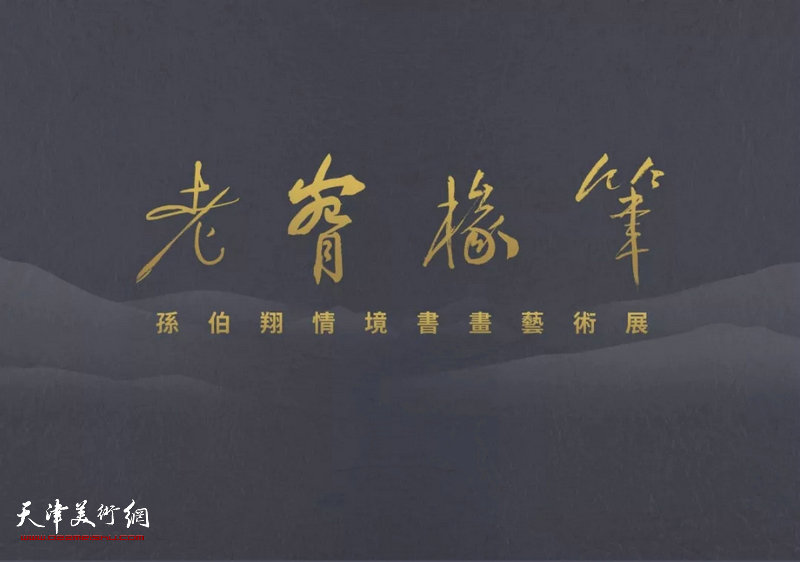 老椽筆
孫伯翔情境書畫藝術展
天津美術網